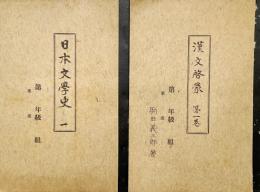 日本文學史 一
第 年級 組
漢文啓蒙 第一卷
第 年級 組